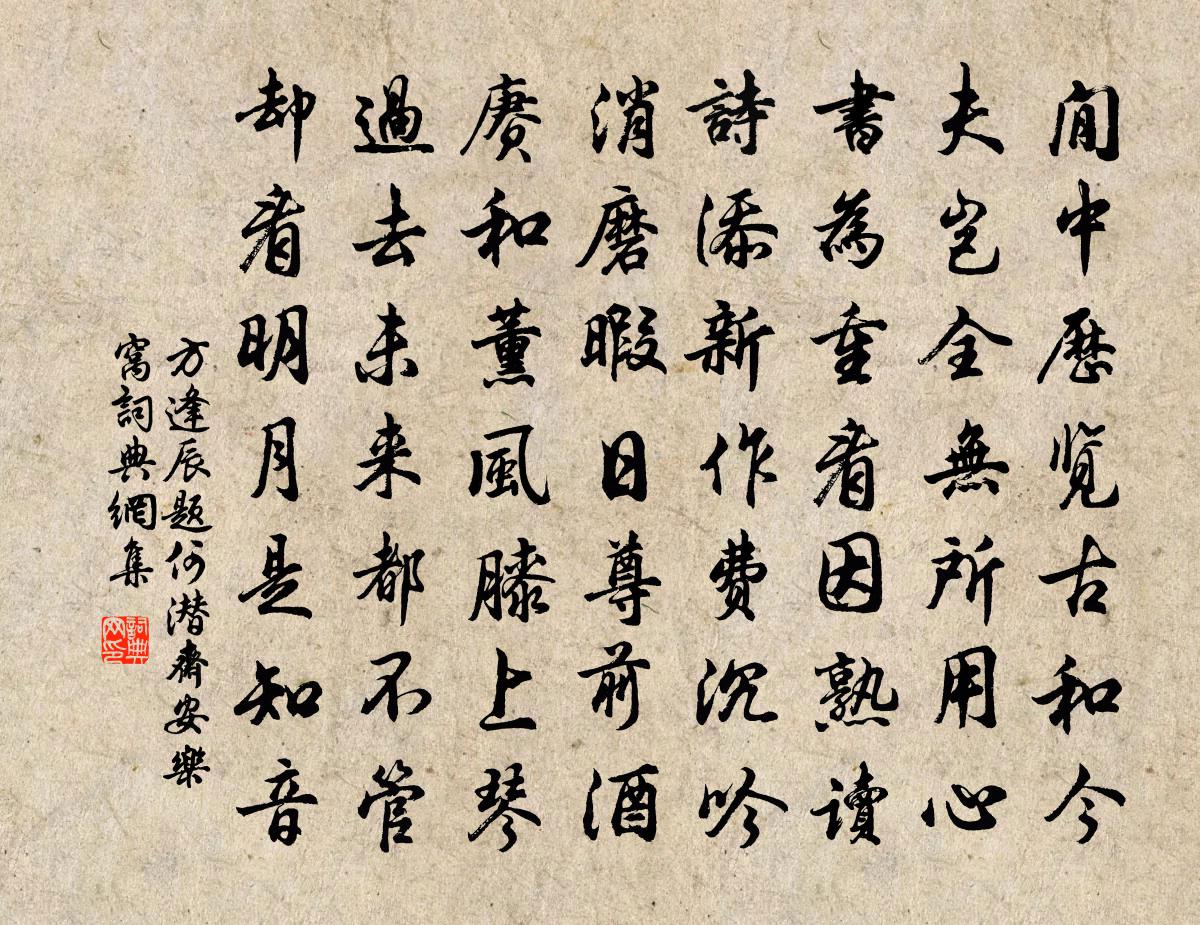 閒中歷覽古和今
夫豈全無所用心
書為重看因熟讀
詩添新作費沉吟
消磨暇日尊前酒
賡和薰風膝上琴
過去未来都不管
却看明月是知音
方逢辰題何潜齋安樂
窩詞典網集
詞典网印